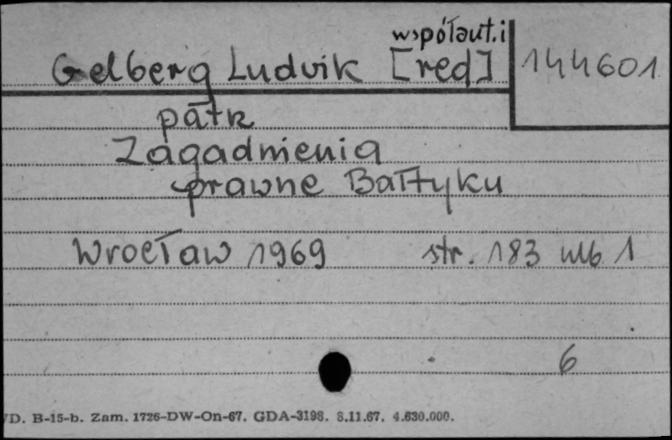 współaut. i
Gelberg Ludwik [red] 144601
patrz
Zagadnienia
prawne Bałtyku
Wrocław 1969 str. 183 nlb 1
6
D. B-15-b. Zam. 1726-DW-On-67. GDA-3198. 8.11.67. 4.630.000.